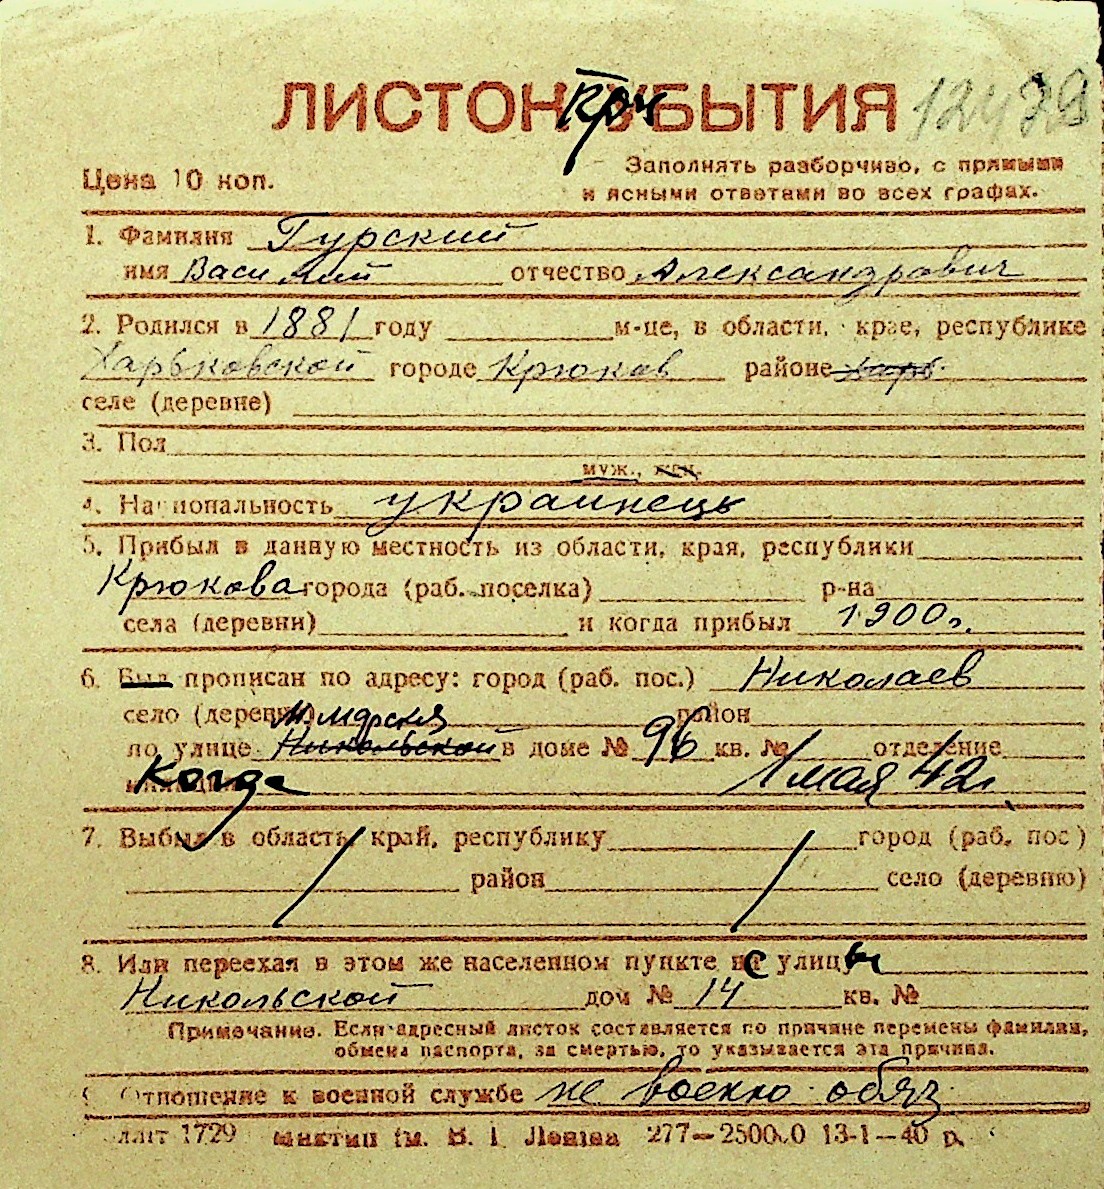 ЛИСТОК УБЫТИЯ
При
Цена 10 коп.
Заполнять разборчиво, с прямыми
и ясными ответами во всех графах.
1. Фамилия Гурский
имя Василий отчество Александрович
2. Родился в 1881 году м-це, в области, крае, республике
Харьковской городе Крюков районе Харь.
селе (деревне)
3. Пол
муж., жен.
4. Национальность украинець
5. Прибыл в данную местность из области, края, республики
Крюкова города (раб. поселка) р-на
села (деревни) и когда прибыл 1900 г.
6. Был прописан по адресу: город (раб. пос.) Николаев
село (деревня) район
по улице Никольской в доме № 96 кв. № отделение
Когда 1 мая 42 г.
7. Выбыл в область, край, республику город (раб. пос.)
район село (деревню)
8. Или переехал в этом же населенном пункте с улицы
Никольской дом № 14 кв. №
Примечание. Если адресный листок составляется по причине перемены фамилии,
обмена паспорта, за смертью, то указывается эта причина.
Отношение к военной службе не военно-обяз.
1729 277—25000 13-1—40 р.